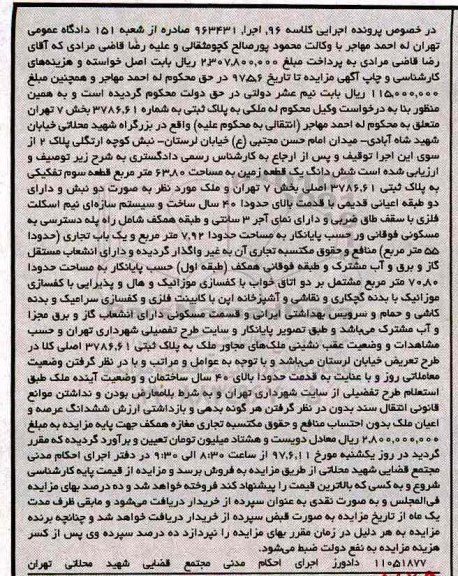 در خصوص پرونده اجرایی کلاسه ۹۶، اجرا، ۹۶۳۴۳۱ صادره از شعبه ۱۵۱ دادگاه عمومی
تهران له احمد مهاجر با وکالت محمود پورصالح کچومثقالی و علیه رضا قاضی مرادی که آقای
رضا قاضی مرادی به پرداخت مبلغ ۲,۳۰۷,۸۰۰,۰۰۰ ریال بابت اصل خواسته و هزینه‌های
کارشناسی و چاپ آگهی مزایده تا تاریخ ۹۷،۵،۶ در حق محکوم له احمد مهاجر و همچنین مبلغ
۱۱۵,۰۰۰,۰۰۰ ریال بابت نیم عشر دولتی در حق دولت محکوم گردیده است و به همین
منظور بنا به درخواست وکیل محکوم له ملکی به پلاک ثبتی به شماره ۳۷۸۶،۶۱ بخش ۷ تهران
متعلق به محکوم له احمد مهاجر (انتقالی به محکوم علیه) واقع در بزرگراه شهید محلاتی خیابان
شهید شاه آبادی- میدان امام حسن مجتبی (ع) خیابان لرستان- نبش کوچه ارتگلی پلاک ۲ از
سوی این اجرا توقیف و پس از ارجاع به کارشناس رسمی دادگستری به شرح زیر توصیف و
ارزیابی شده است شش دانگ یک قطعه زمین به مساحت ۶۳،۸۰ متر مربع قطعه سوم تفکیکی
به پلاک ثبتی ۳۷۸۶،۶۱ اصلی بخش ۷ تهران و ملک مورد نظر به صورت دو نبش و دارای
دو طبقه اعیانی قدیمی با قدمت بالای حدودا ۴۰ سال ساخت و سیستم سازه‌ای نیم اسکلت
فلزی با سقف طاق ضربی و دارای نمای آجر ۳ سانتی و طبقه همکف شامل راه پله دسترسی به
مسکونی فوقانی ور حسب پایانکار به مساحت حدودا ۷،۹۲ متر مربع و یک باب تجاری (حدودا
۵۵ متر مربع) منافع و حقوق مکتسبه تجاری آن به غیر واگذار گردیده و دارای انشعاب مستقل
گاز و برق و آب مشترک و طبقه فوقانی همکف (طبقه اول) حسب پایانکار به مساحت حدودا
۷۰،۸۰ متر مربع مشتمل بر دو اتاق خواب با کفسازی موزائیک و هال و پذیرایی با کفسازی
موزائیک با بدنه گچکاری و نقاشی و آشپزخانه اپن با کابینت فلزی و کفسازی سرامیک و بدنه
کاشی و حمام و سرویس بهداشتی ایرانی و قسمت مسکونی دارای انشعاب گاز و برق مجزا
و آب مشترک می‌باشد و طبق تصویر پایانکار و سایت طرح تفصیلی شهرداری تهران و حسب
مشاهدات و وضعیت عقب نشینی ملک‌های مجاور ملک به پلاک ثبتی ۳۷۸۶،۶۱ اصلی کلا در
طرح تعریض خیابان لرستان می‌باشد و با توجه به عوامل و مراتب و با در نظر گرفتن وضعیت
معاملاتی روز و با عنایت به قدمت حدودا بالای ۴۰ سال ساختمان و وضعیت آینده ملک طبق
استعلام طرح تفصیلی از سایت شهرداری تهران و به شرط بلامعارض بودن و نداشتن موانع
قانونی انتقال سند بدون در نظر گرفتن هر گونه بدهی و بازداشتی ارزش ششدانگ عرصه و
اعیان ملک بدون احتساب منافع و حقوق مکتسبه تجاری مغازه همکف جهت پایه مزایده به مبلغ
۲,۸۰۰,۰۰۰,۰۰۰ ریال معادل دویست و هشتاد میلیون تومان تعیین و برآورد گردیده که مقرر
گردید در روز یکشنبه مورخ ۹۷،۶،۱۱ از ساعت ۸:۳۰ الی ۹:۳۰ در دفتر اجرای احکام مدنی
مجتمع قضایی شهید محلاتی از طریق مزایده به فروش برسد و مزایده از قیمت پایه کارشناسی
شروع و به کسی که بالاترین قیمت را پیشنهاد کند فروخته خواهد شد و ده درصد بهای مزایده
فی‌المجلس و به صورت نقدی به عنوان سپرده از خریدار دریافت می‌شود و مابقی ظرف مدت
یک ماه از تاریخ مزایده به صورت قبض سپرده از خریدار دریافت خواهد شد و چنانچه برنده
مزایده به هر دلیل در زمان مقرر بهای مزایده را نپردازد ده درصد سپرده وی پس از کسر
هزینه مزایده به نفع دولت ضبط می‌شود.
۱۱۰۵۱۸۷۷ دادورز اجرای احکام مدنی مجتمع قضایی شهید محلاتی تهران